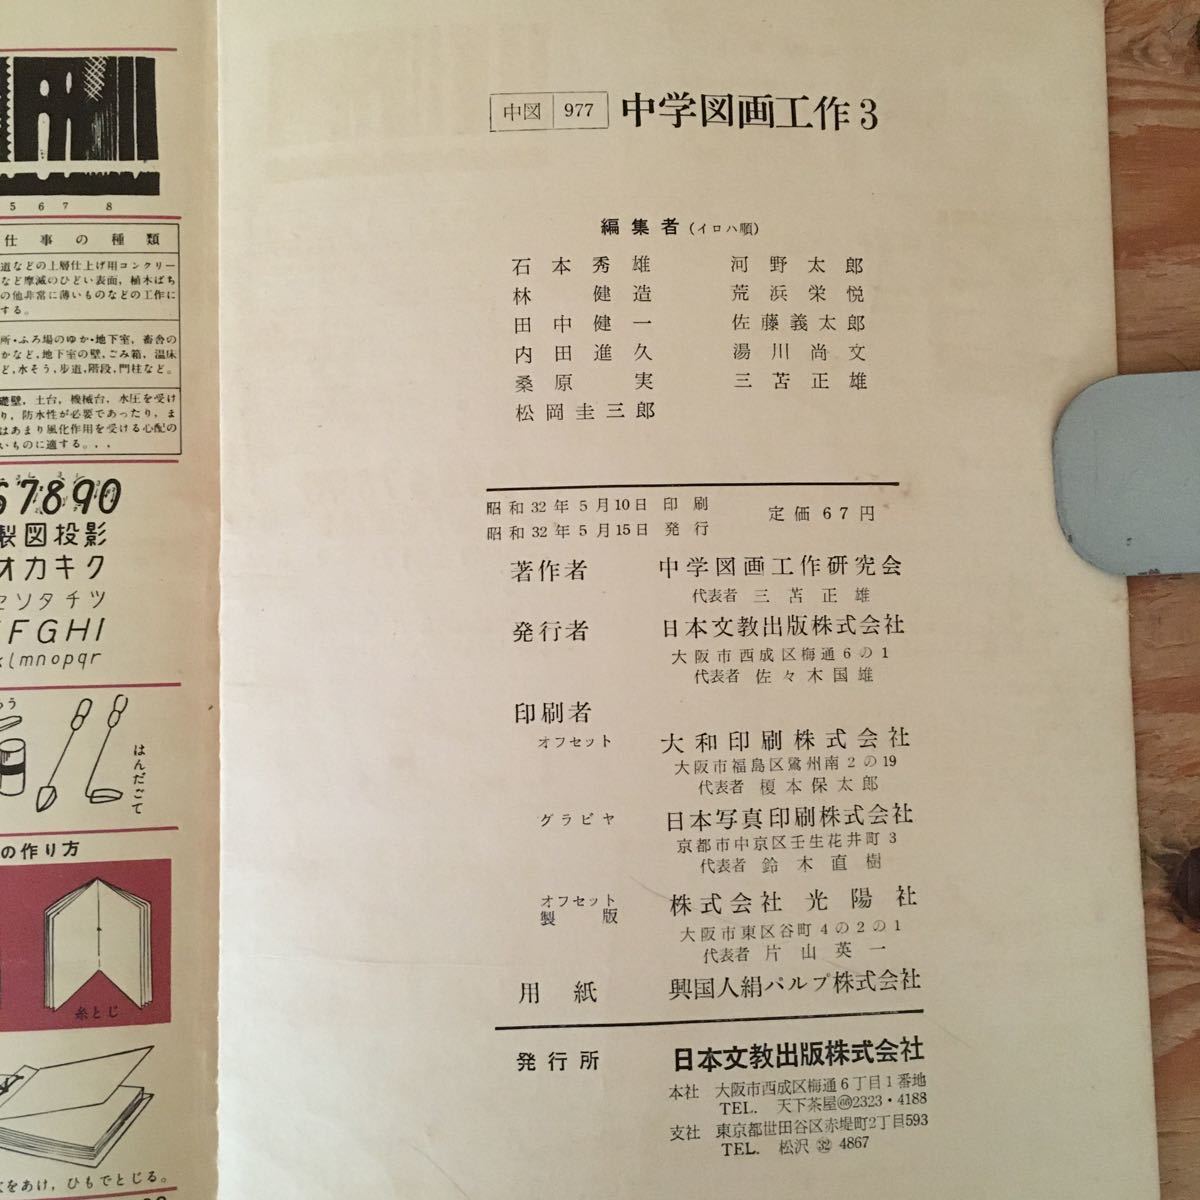 5 6 7 8
仕事の種類
道などの上層仕上げ用コンクリー
など摩減のひどい表面，植木ばち
の他非常に薄いものなどの工作に
する。
所・ふろ場のゆか・地下室，畜舎の
かなど，地下室の壁，ごみ箱，温床
ど，水そう，歩道，階段，門柱など。
礎壁，土台，機械台，水圧を受け
り，防水性が必要であったり，ま
はあまり風化作用を受ける心配の
いものに適する。．．
67890
製図投影
オカキク
セソタチツ
FGHI
klmnopqr
はんだごて
の作り方
糸とじ
をあけ，ひもでとじる。
中図 977 中学図画工作3
編集者（イロハ順）
石本秀雄 河野太郎
林健造 荒浜栄悦
田中健一 佐藤義太郎
内田進久 湯川尚文
桑原実 三苫正雄
松岡圭三郎
昭和32年5月10日 印刷
昭和32年5月15日 発行
定価67円
著作者 中学図画工作研究会
代表者 三苫正雄
発行者 日本文教出版株式会社
大阪市西成区梅通6の1
代表者 佐々木国雄
印刷者
オフセット 大和印刷株式会社
大阪市福島区鷺州南2の19
代表者 榎本保太郎
グラビヤ 日本写真印刷株式会社
京都市中京区壬生花井町3
代表者 鈴木直樹
オフセット製版 株式会社 光陽社
大阪市東区谷町4の2の1
代表者 片山英一
用紙 興国人絹パルプ株式会社
発行所 日本文教出版株式会社
本社 大阪市西成区梅通6丁目1番地
TEL. 天下茶屋㊅2323・4188
支社 東京都世田谷区赤堤町2丁目593
TEL. 松沢㉜4867